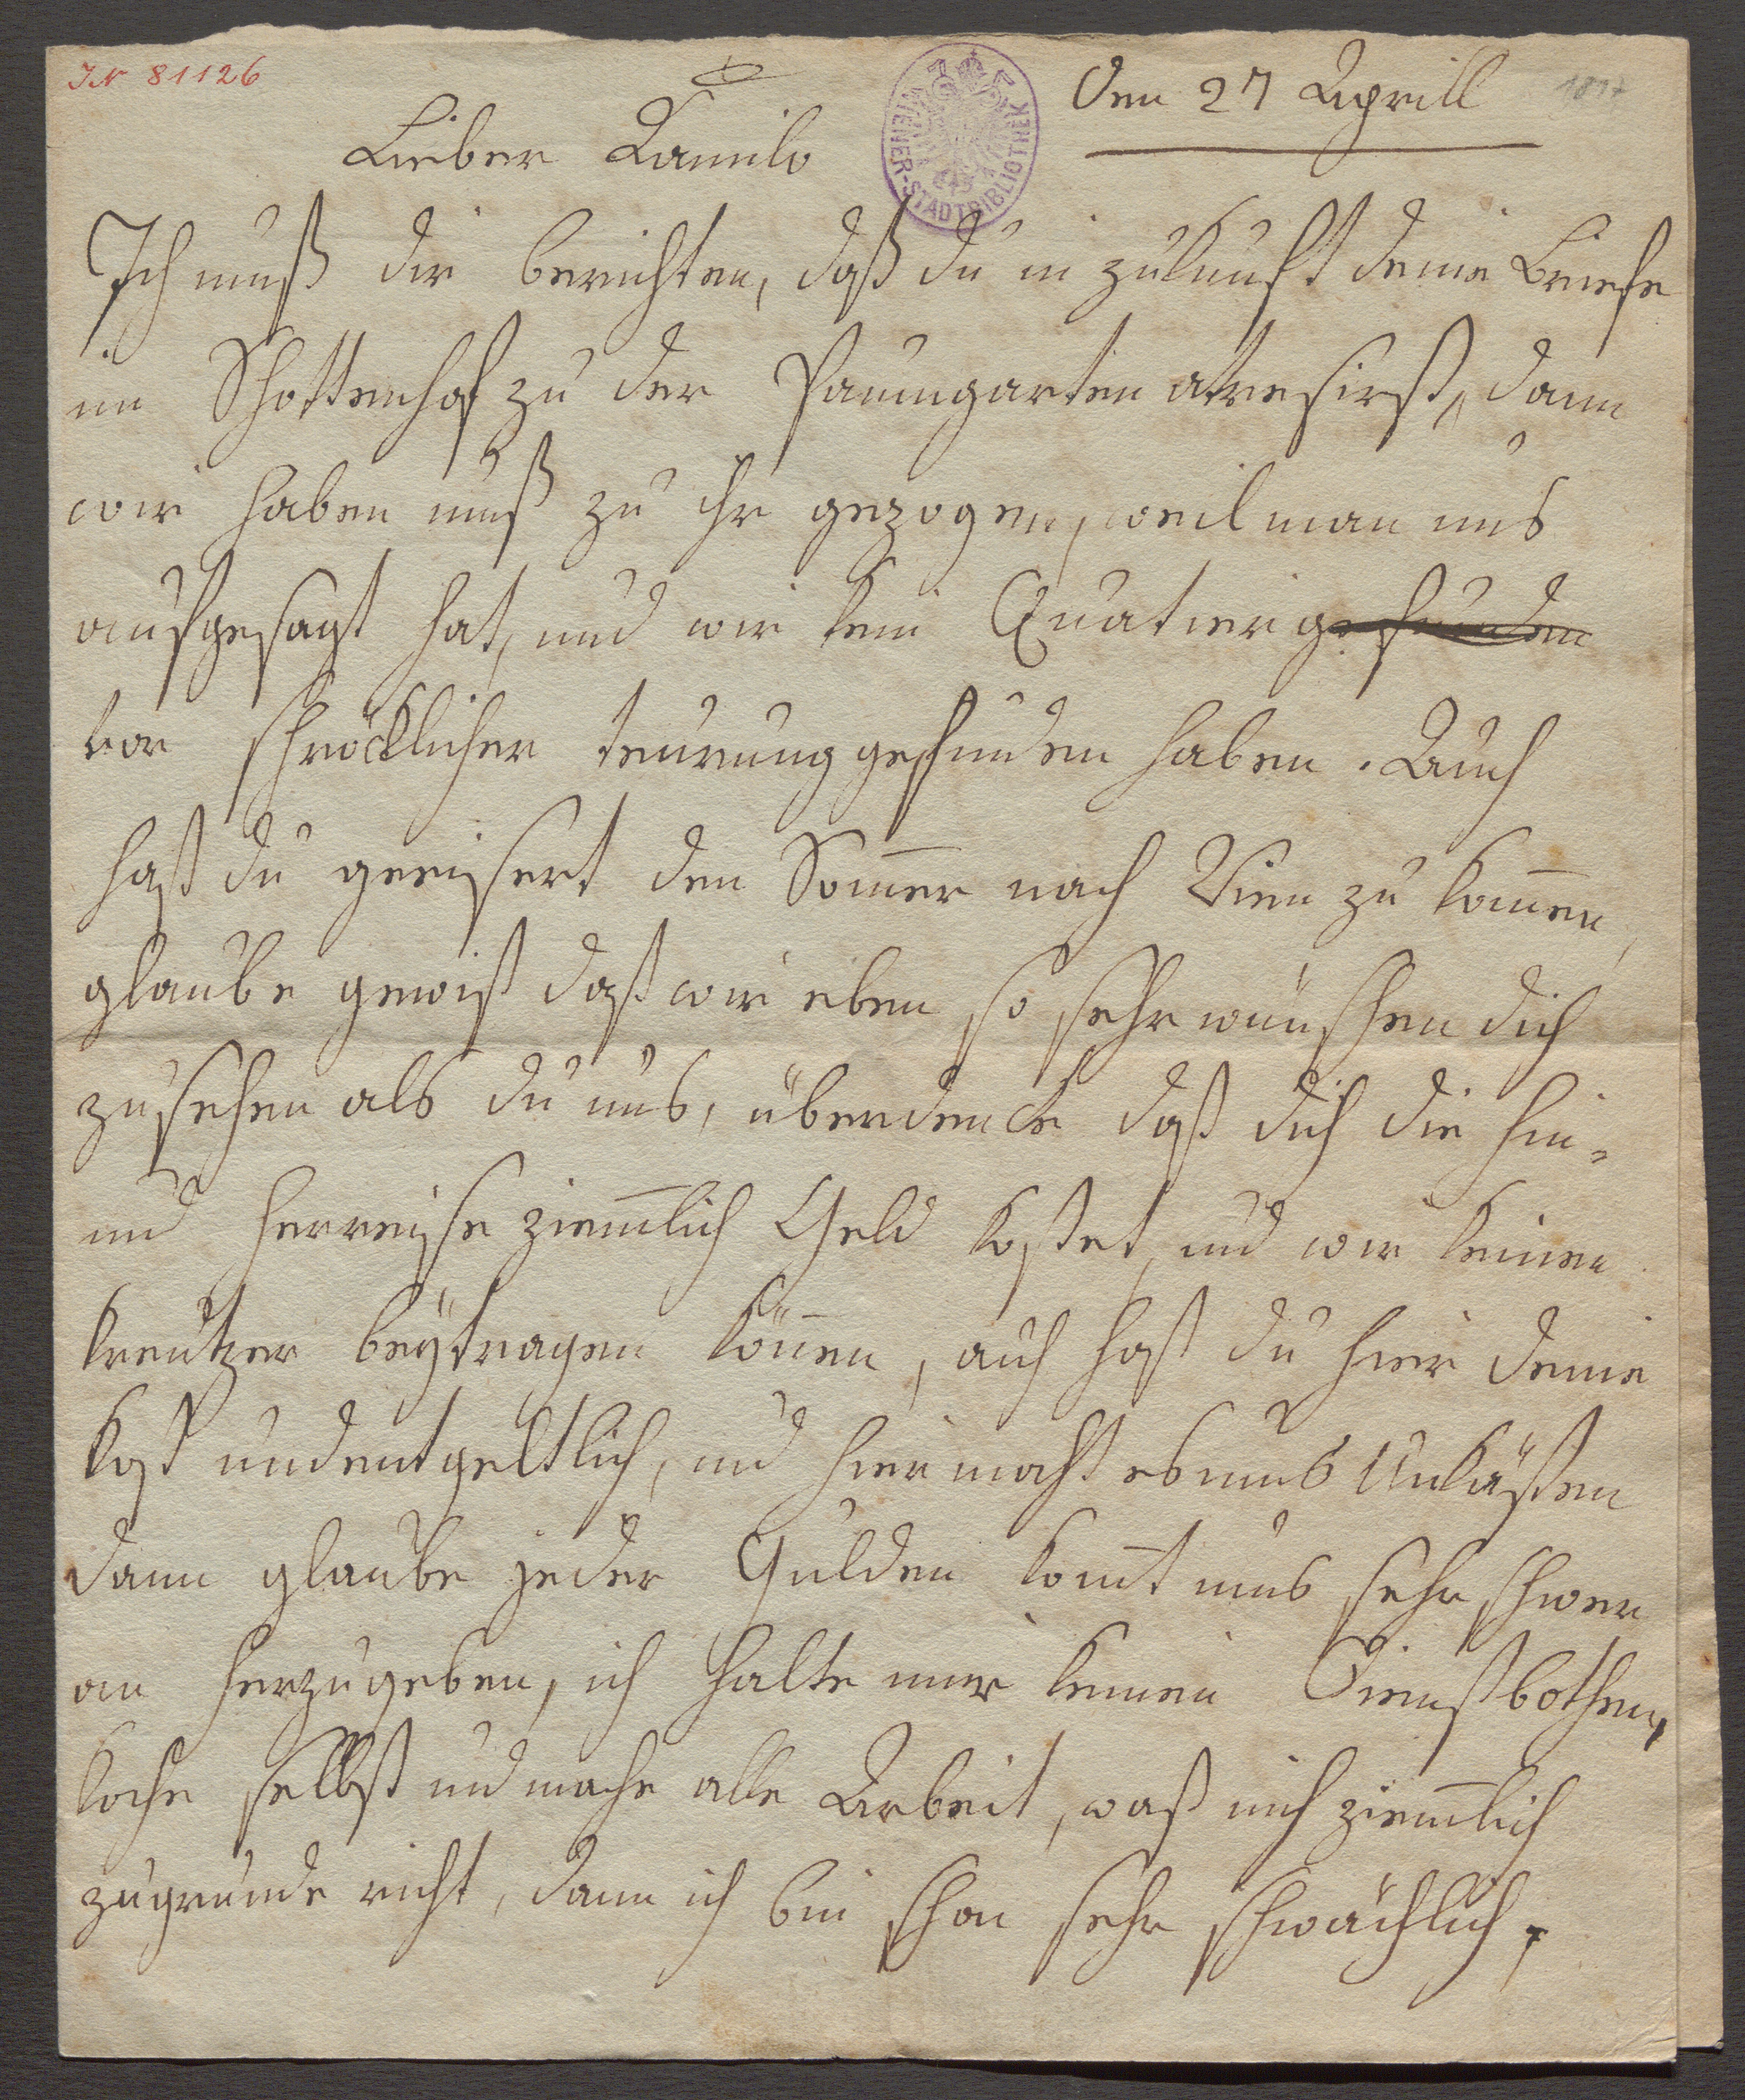 IN 81126
Den 27 Aprill 1817
WIENER-STADTBIBLIOTHEK
Lieber Kamilo
Ich muß dir berichten, daß du in zukunft deine Briefe
im Schottenhof zu der Paumgarten atresirst, dann
wir haben muß zu ihr gezogen, weil man uns
aufgesagt hat, und wir kein Quatier gefunden
vor schröcklicher teurung gefunden haben. Auch
hast du geeisert den Som̄er nach Wien zu kom̄en,
glaube gewiß daß wir eben so sehr wünschen dich
zu sehen als du uns, überdencke daß dich die hin-
und herreise ziem̄lich Geld kostet, und wir keinen
kreutzer beÿtragen kön̄en, auch hast du hier deine
kost undentgeltlich, und hier macht es uns Unkästen
dann glaube jeder Gulden kom̄t uns sehr schwer
an herzugeben, ich halte mir keinen Dienstbothen,
koche selbst und mache alle Arbeit, waß mich ziem̄lich
zugrunde richt, dann ich bin schon sehr schwächlich,